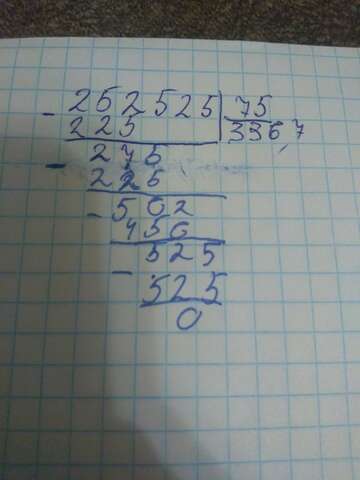 - 252525 | 75
225 3367
- 275
225
- 502
450
525
- 525
0